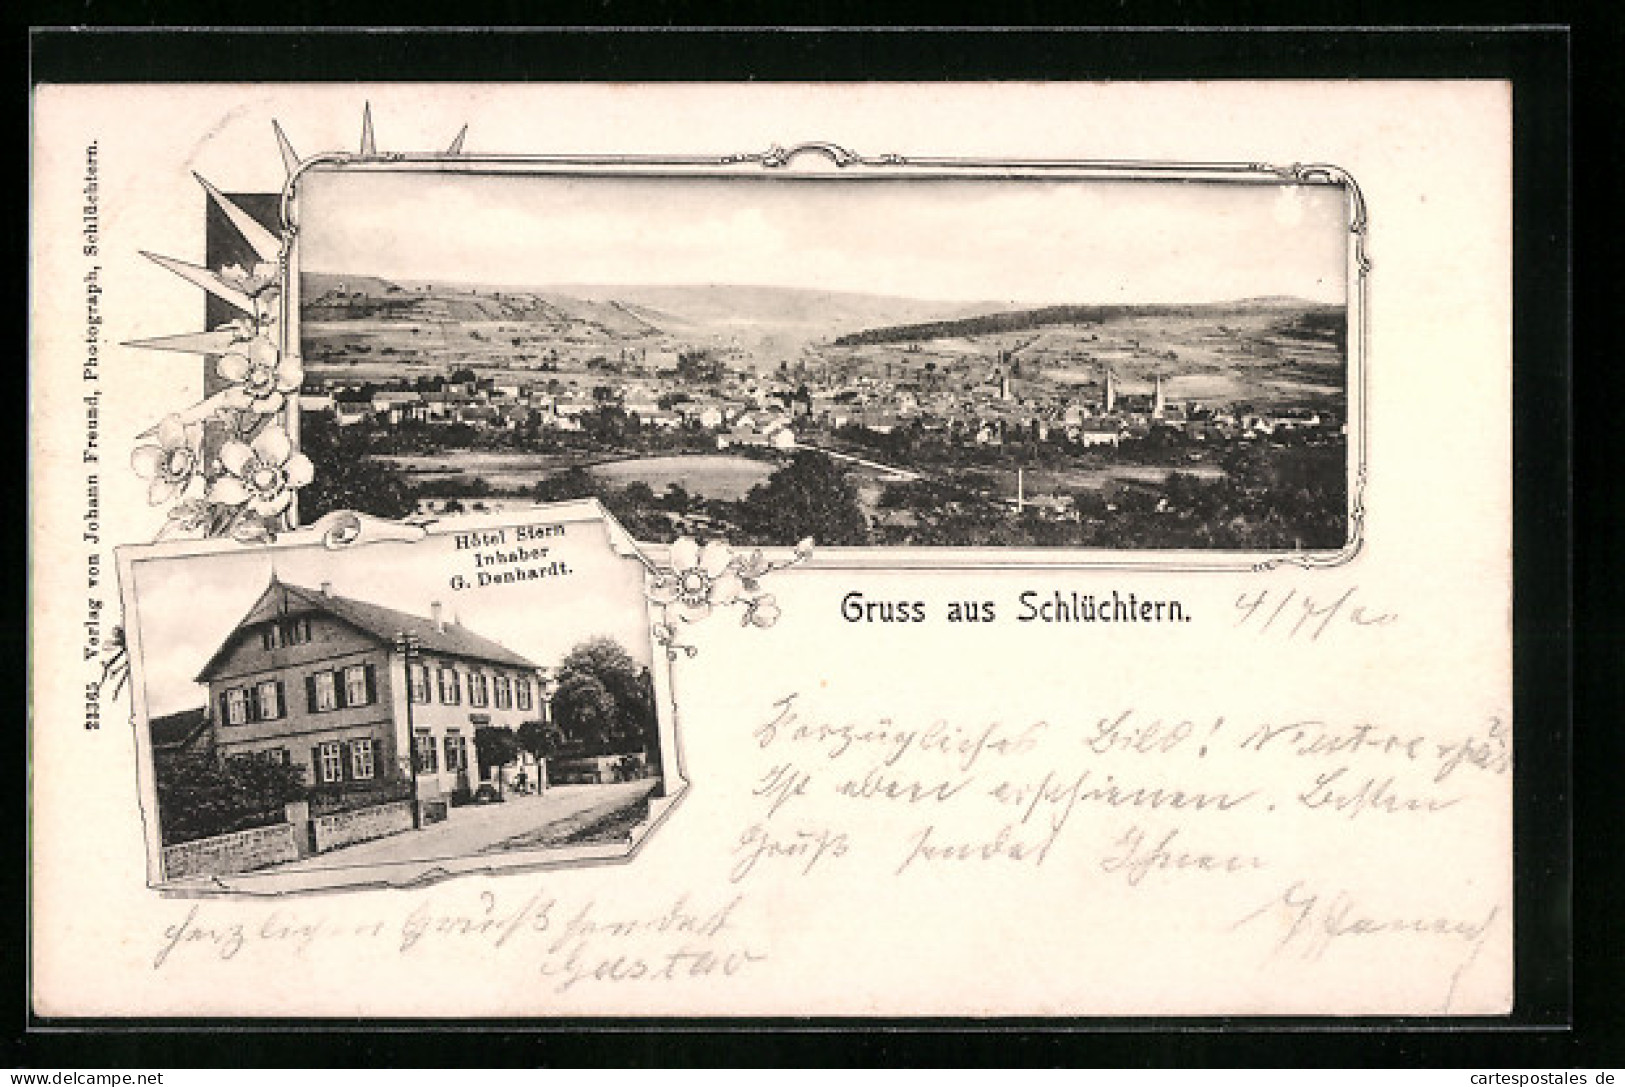 22365 Verlag von Johann Freund, Photograph, Schlüchtern.
Hôtel Stern
Inhaber
G. Denhardt.
Gruss aus Schlüchtern. 4/7/00
Vorzügliches Bild!
Ist eben erschienen. Besten
Gruß sendet Ihnen
Herzlichen Gruß sendet
Gustav
ak-ansichtskarten.de
cartespostales.de